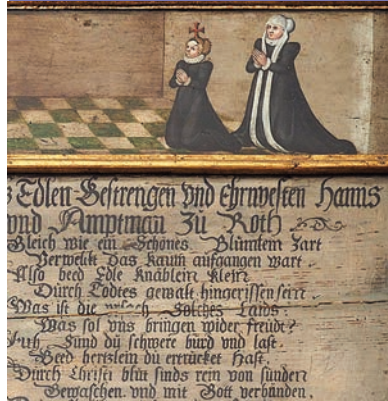 Edlen Gestrengen Vnd Ehrnvesten Hanns
vnd Amptman Zu Roth
Gleich wie ein Schönes Blümlein Zart
Verwelkt Das Kaum aufgangen wart.
Also beed Edle Knäblein Klein
Durch Todtes gewalt hingerissen sein.
Was ist die vrsach Solches Laids.
Was sol vns bringen wider freudt?
Sünd du schwere bürd vnd last.
Beed hertzlein du ertrücket Hast.
Durch Christi blüt sinds rein von sünden
Gewaschen. vnd mit Gott verbünden.